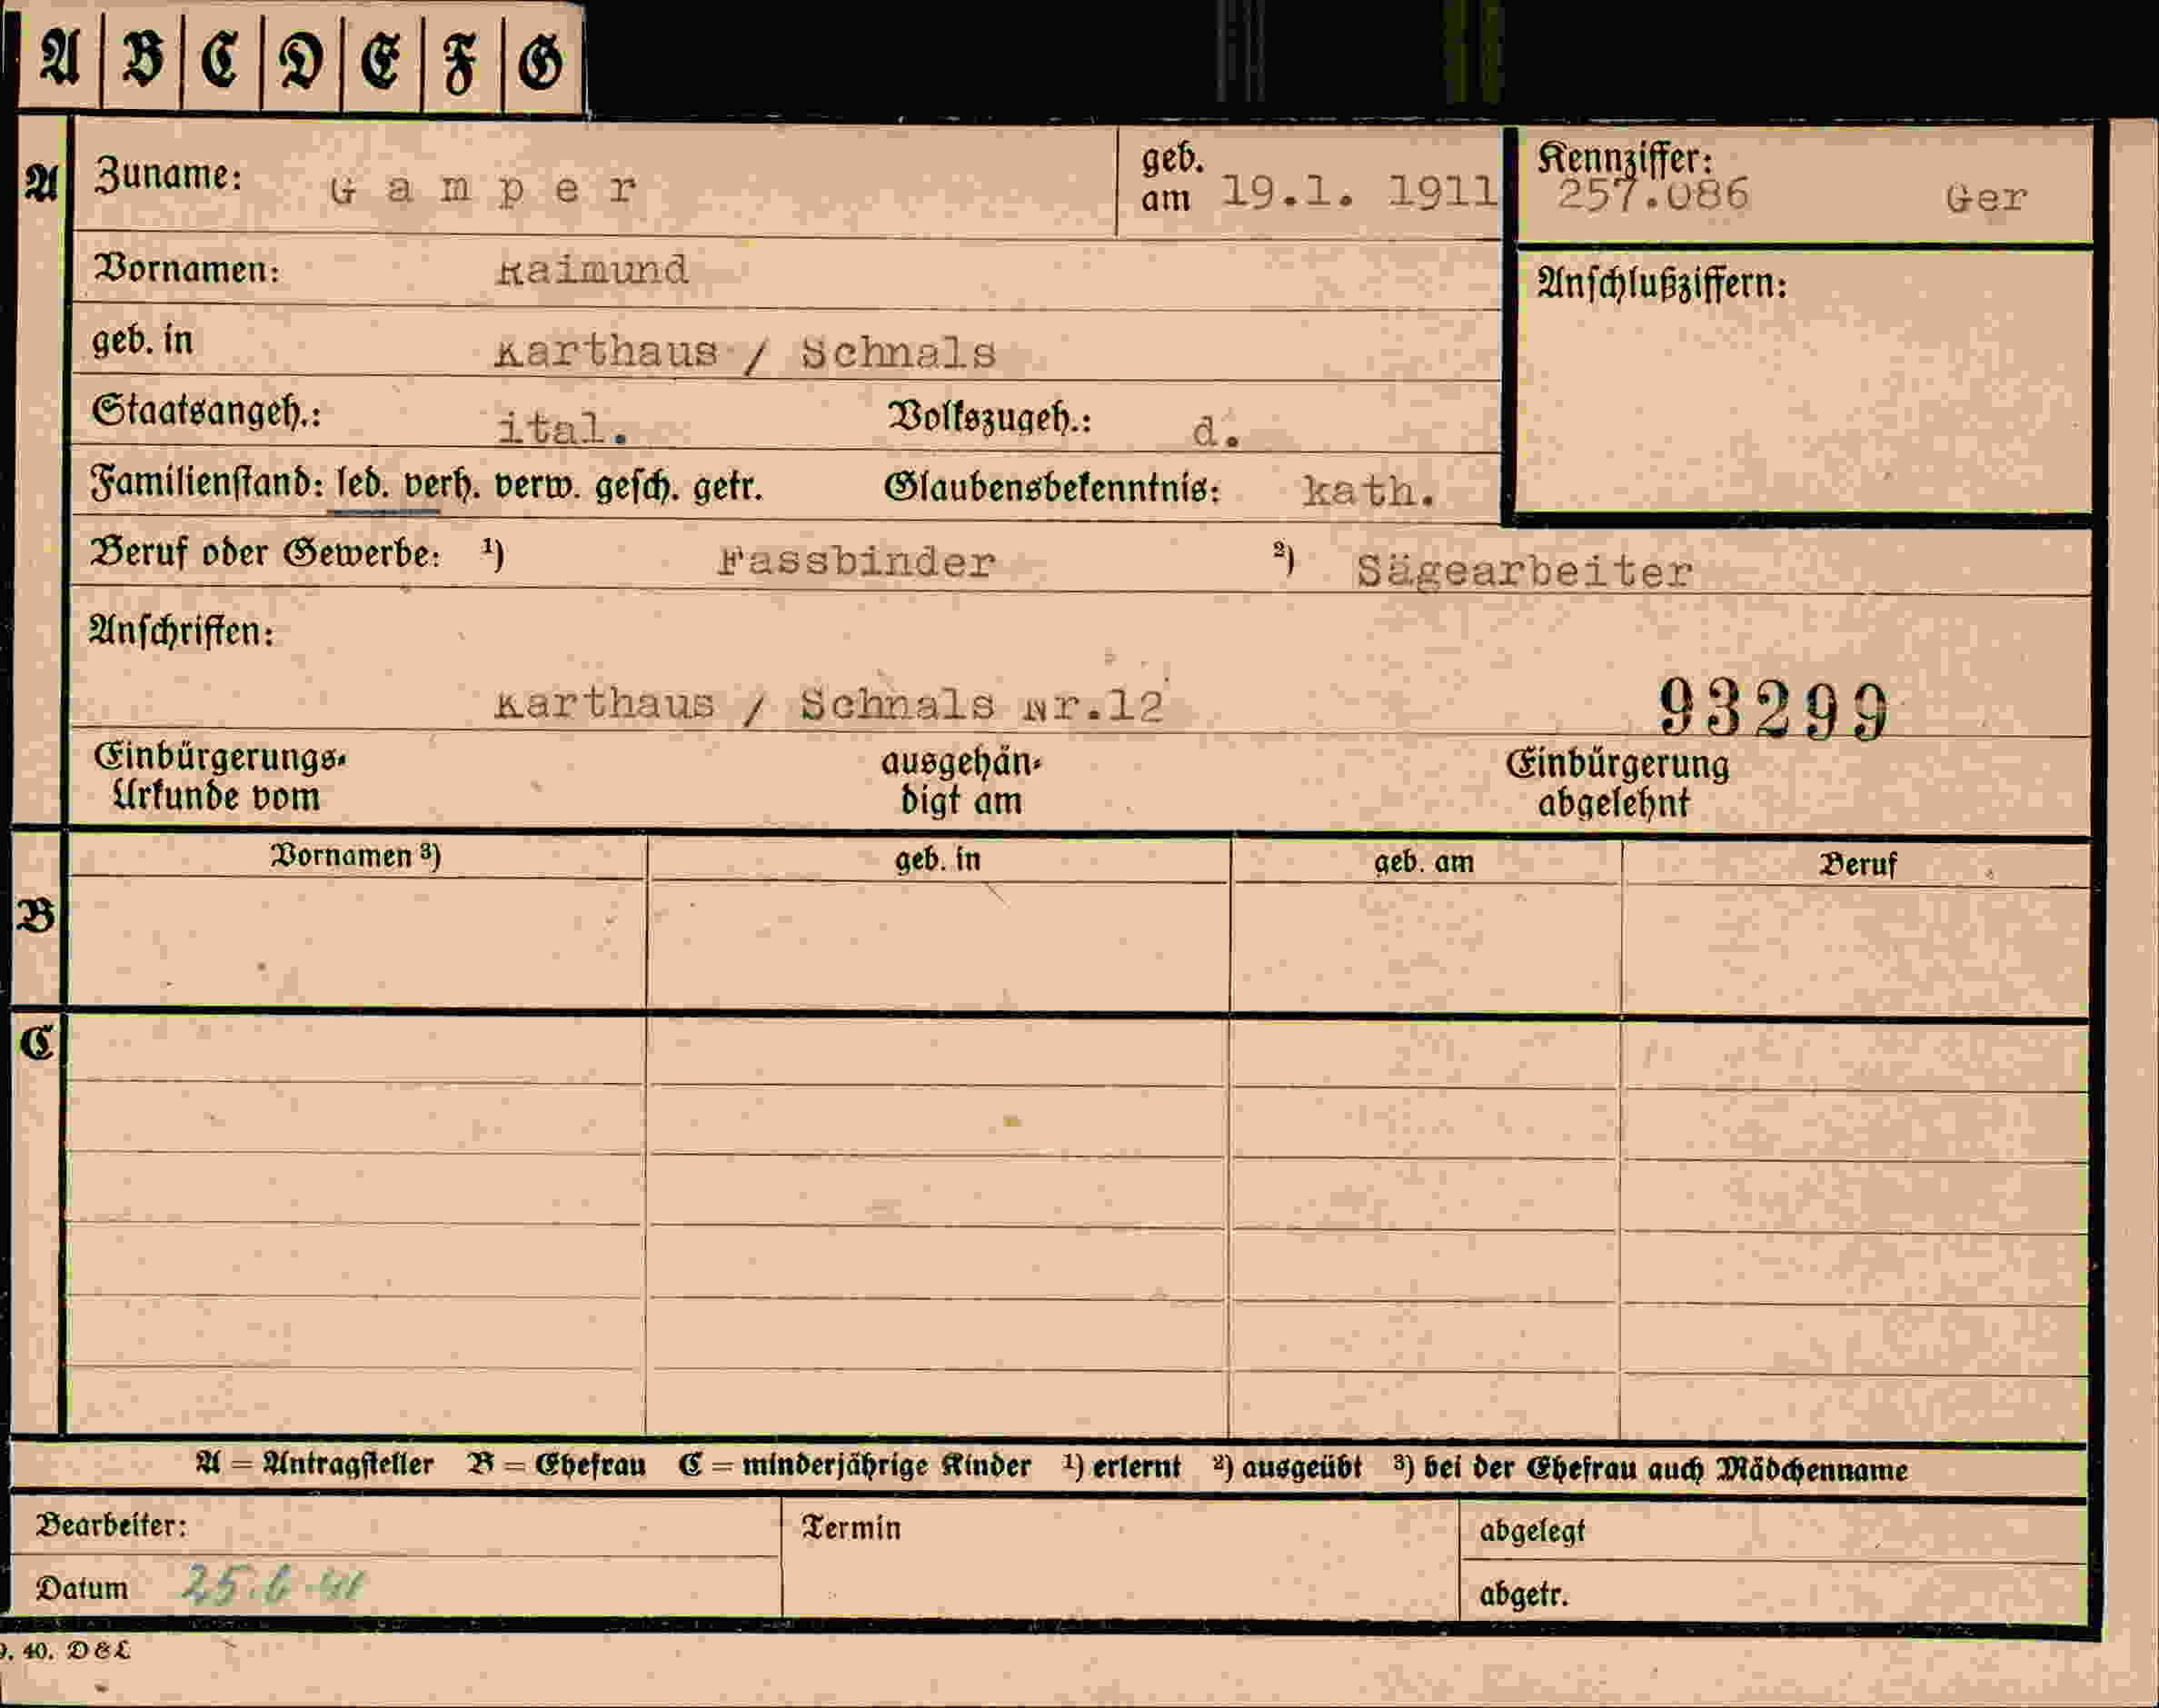 A B C D E F G
A Zuname: Gamper geb. am 19.1. 1911 Kennziffer: 257.086 Ger
Vornamen: Raimund Anschlußziffern:
geb. in Karthaus / Schnals
Staatsangeh.: ital. Volkszugeh.: d.
Familienstand: led. verh. verw. gesch. getr. Glaubensbekenntnis: kath.
Beruf oder Gewerbe: ¹) Fassbinder ²) Sägearbeiter
Anschriften:
Karthaus / Schnals Nr.12 93299
Einbürgerungs- ausgehän- Einbürgerung
Urkunde vom digt am abgelehnt
Vornamen ³) geb. in geb. am Beruf
B
C
A = Antragsteller B = Ehefrau C = minderjährige Kinder ¹) erlernt ²) ausgeübt ³) bei der Ehefrau auch Mädchenname
Bearbeiter: Termin abgelegt
Datum 25.6.41 abgetr.
9. 40. D&L